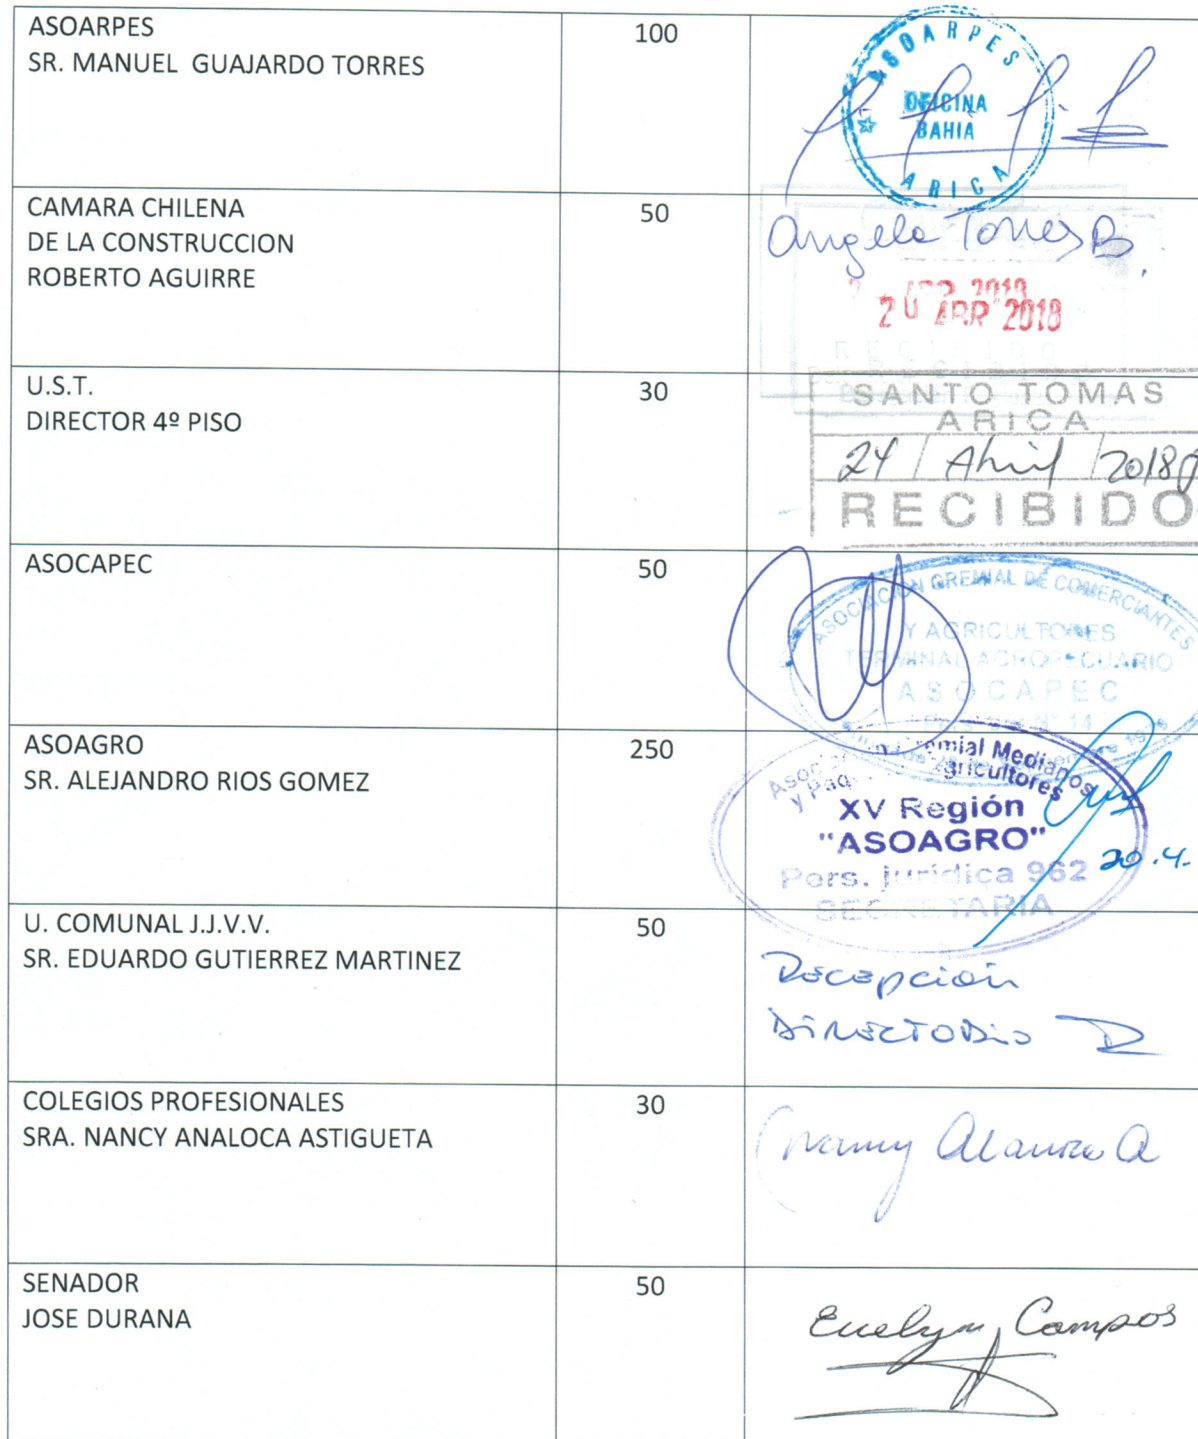 ASOARPES
SR. MANUEL GUAJARDO TORRES
100
ASOARPES
OFICINA
BAHIA
ARICA
CAMARA CHILENA
DE LA CONSTRUCCION
ROBERTO AGUIRRE
50
Angela Torres B.
20 ABR 2018
U.S.T.
DIRECTOR 4º PISO
30
SANTO TOMAS
ARICA
24 / Abril / 2018
RECIBIDO
ASOCAPEC
50
ASOCIACION GREMIAL DE COMERCIANTES
Y AGRICULTORES
TERMINAL AGROPECUARIO
ASOCAPEC
Nº 14
ASOAGRO
SR. ALEJANDRO RIOS GOMEZ
250
Gremial Medianos
y Agricultores
XV Región
"ASOAGRO"
Pers. jurídica 962
SECRETARIA
20.4.
U. COMUNAL J.J.V.V.
SR. EDUARDO GUTIERREZ MARTINEZ
50
Recepción
Directorio
COLEGIOS PROFESIONALES
SRA. NANCY ANALOCA ASTIGUETA
30
Nancy Alanoca A
SENADOR
JOSE DURANA
50
Evelyn Campos